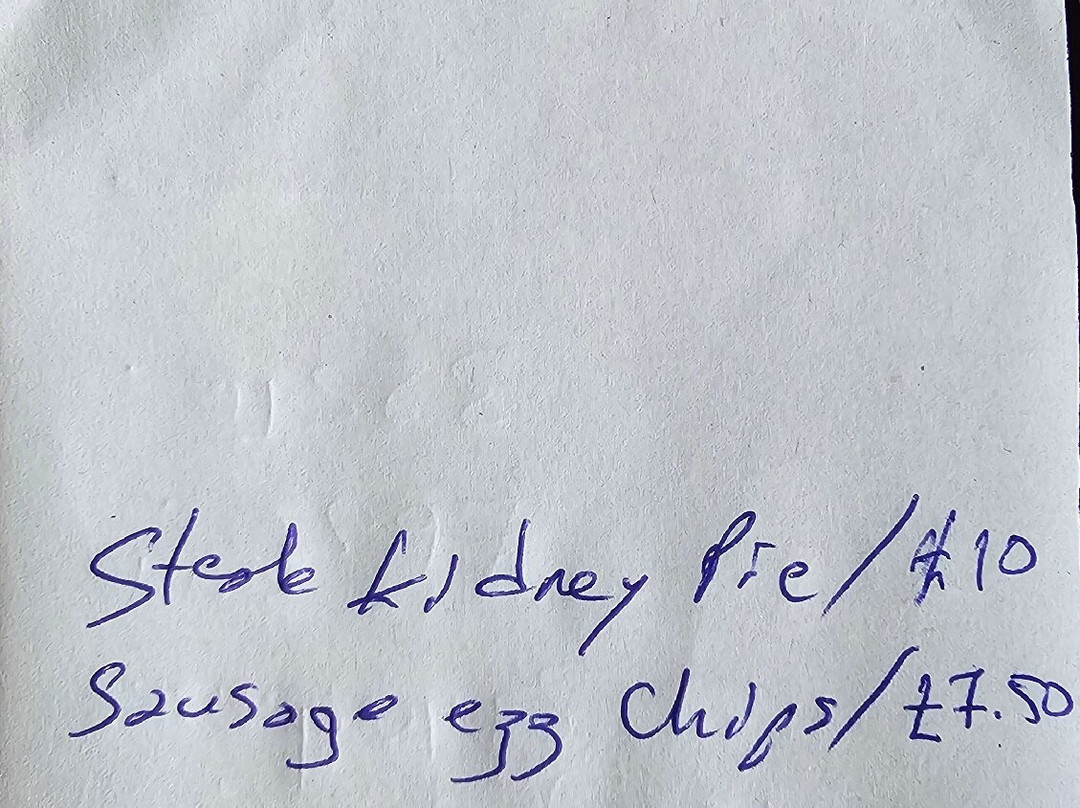 Steak kidney Pie/£10
Sausage egg Chips/£7.50